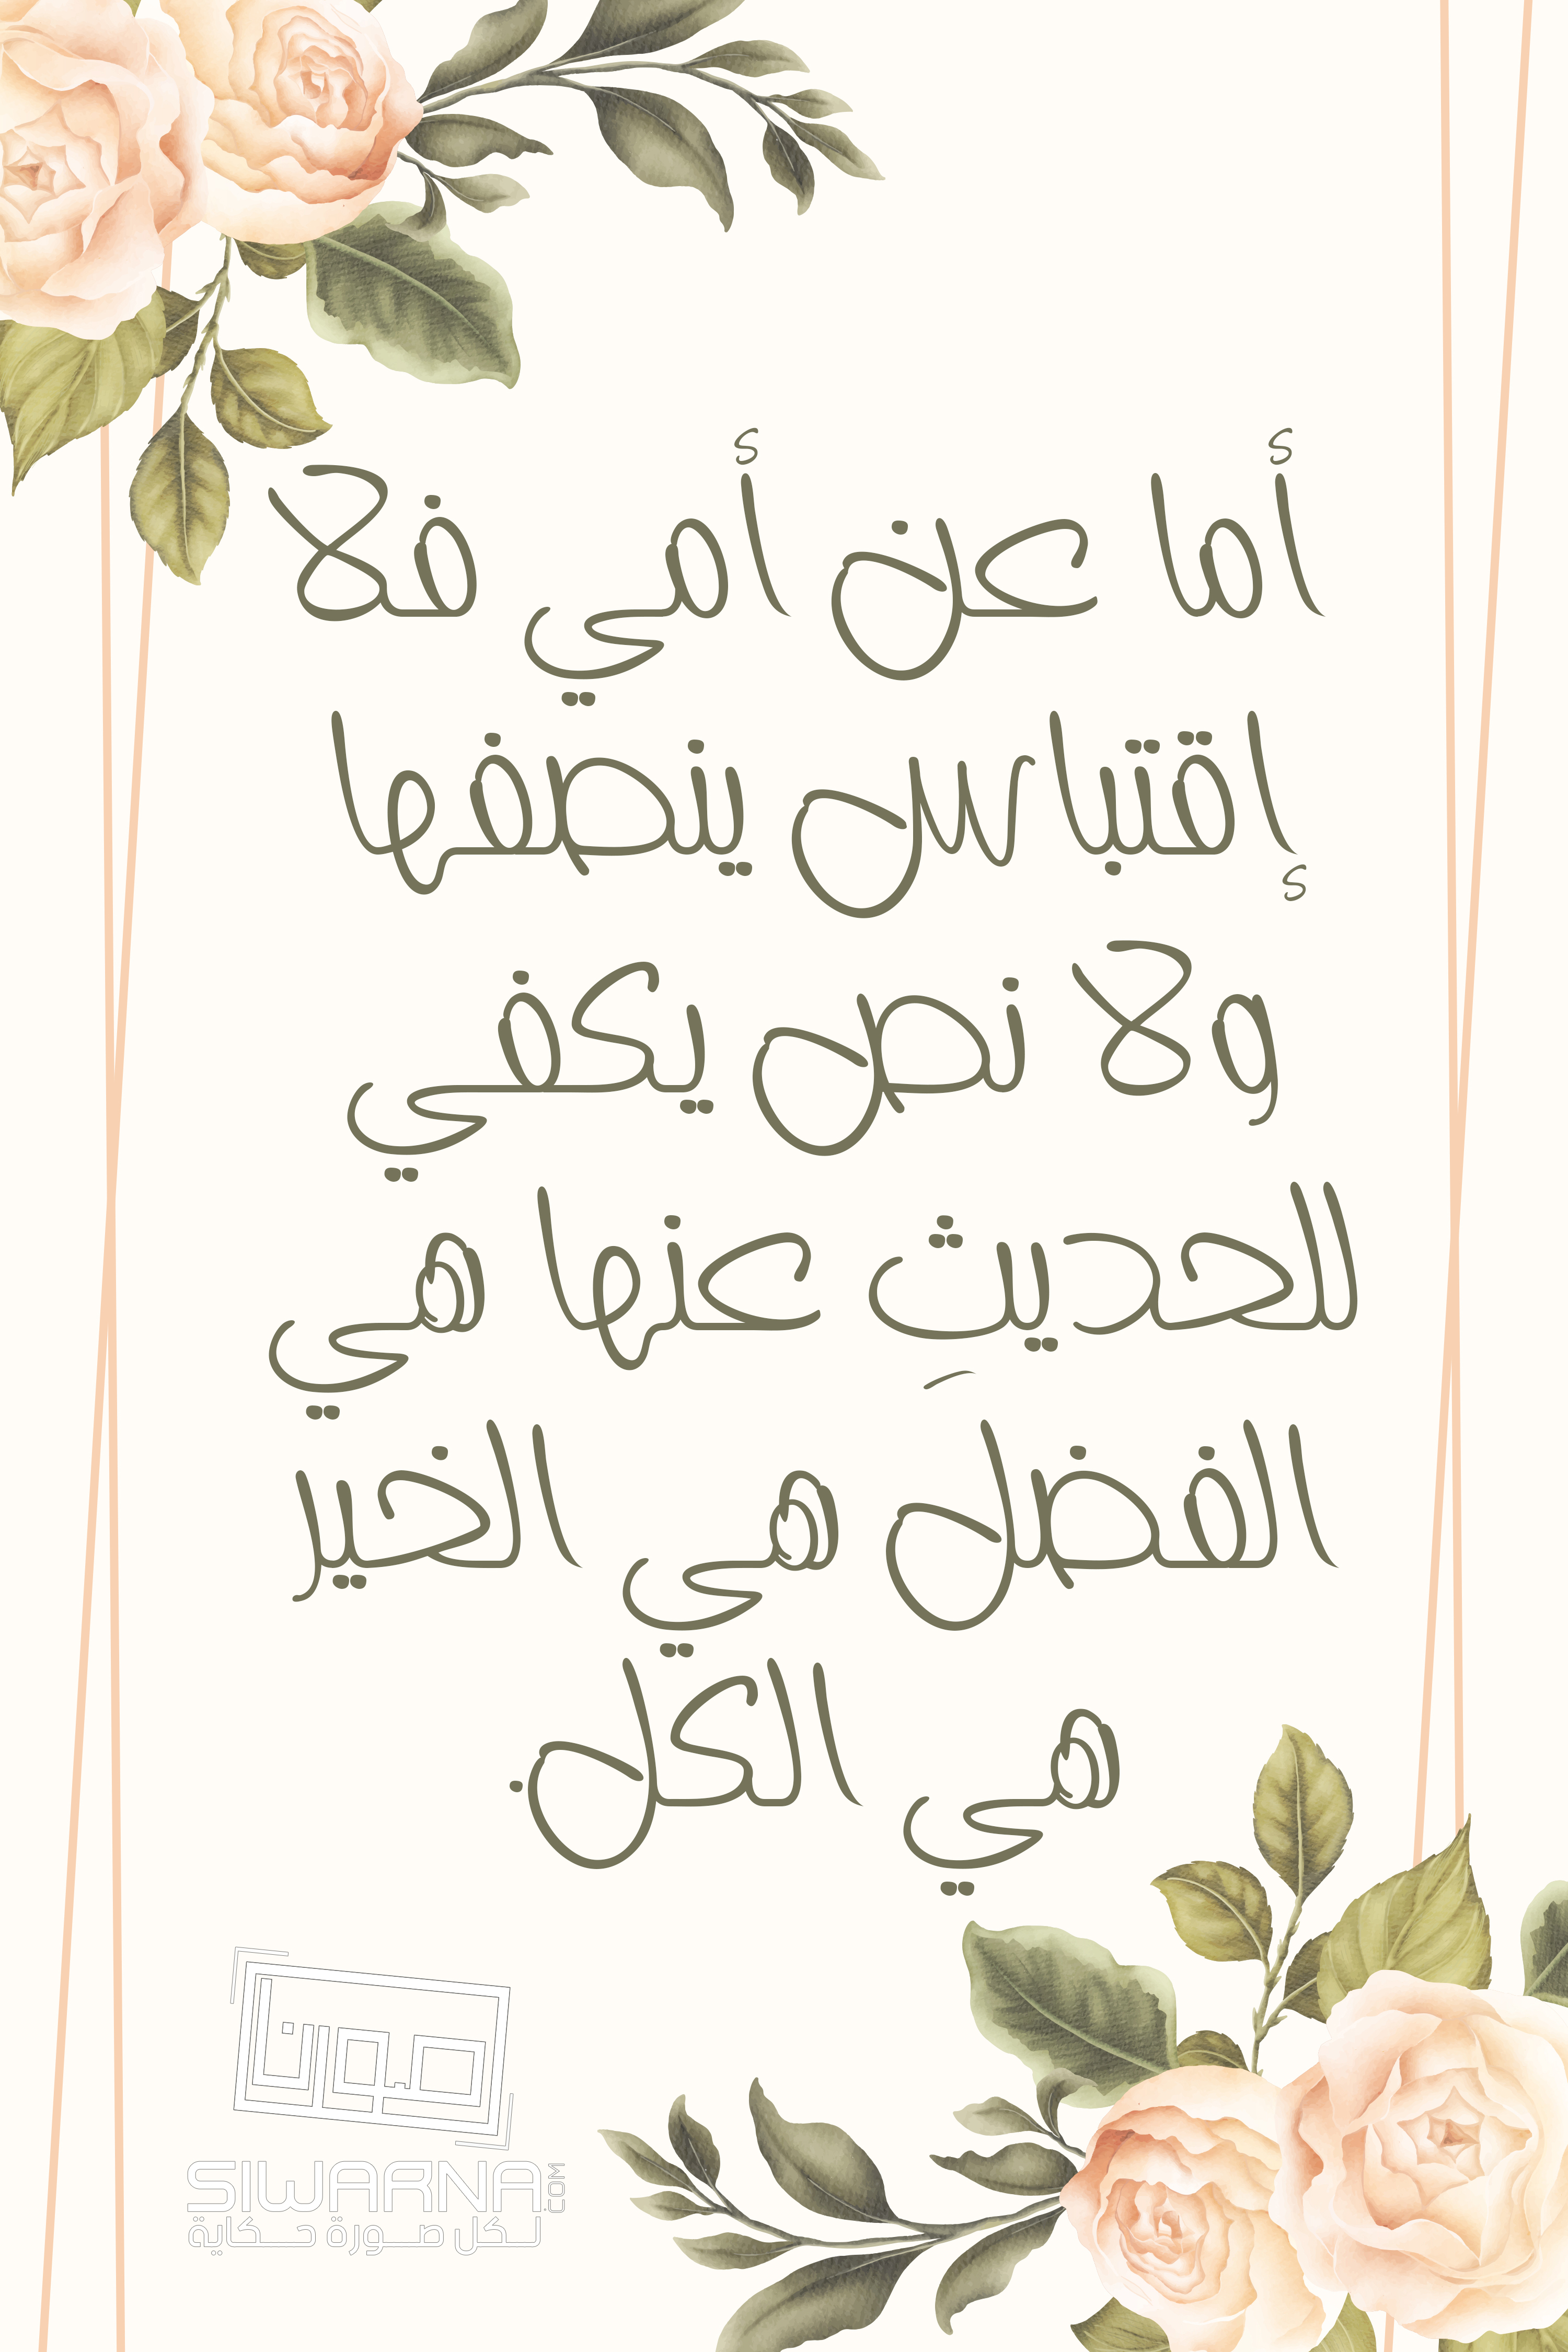 أما عن أمي فلا
إقتباس ينصفها
ولا نص يكفي
للحديثِ عنها هي
الفضل هي الخير
هي الكل.
صورنا
SIWARNA.COM
لكل صورة حكاية